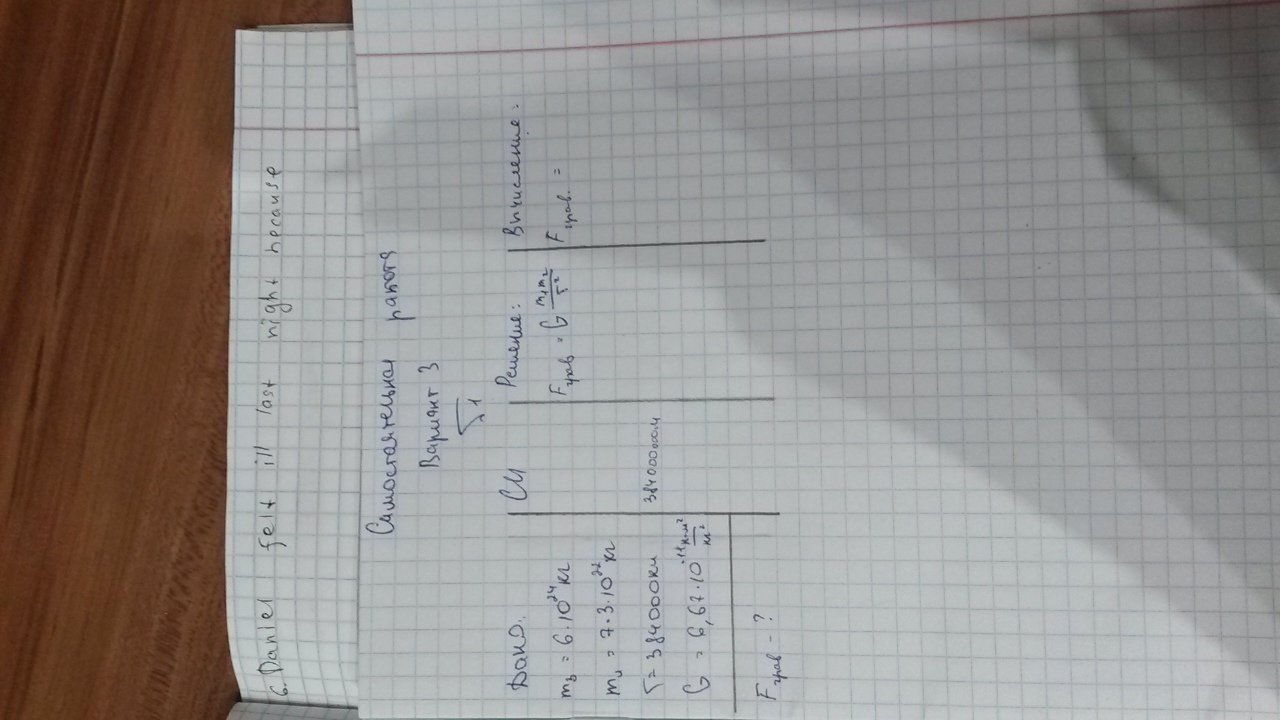 6. Daniel felt ill last night because
Самостоятельная работа
Вариант 3
√1
Дано:
m₃ = 6·10²⁴кг
mл = 7·3·10²²кг
r = 384000км
G = 6,67·10⁻¹¹ н·м²/кг²
Fграв - ?
СИ
384000000м
Решение:
Fграв = G m₁m₂/r²
Вычисление:
Fграв. =